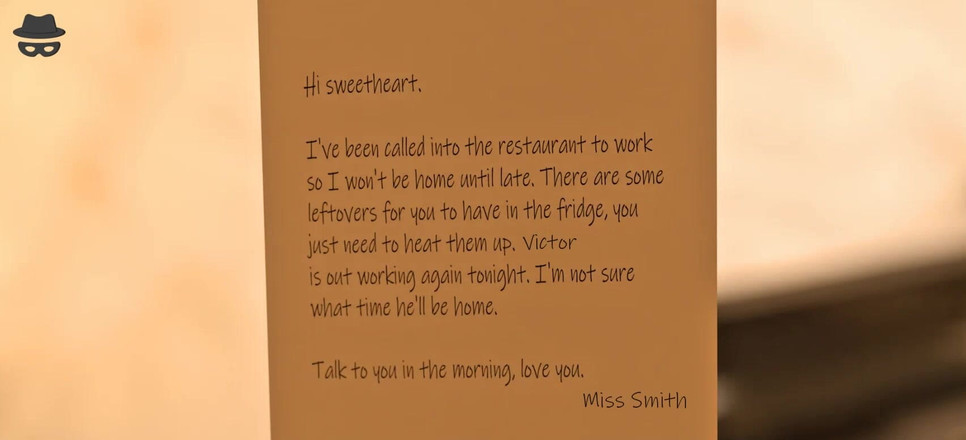 Hi sweetheart.
I've been called into the restaurant to work
so I won't be home until late. There are some
leftovers for you to have in the fridge, you
just need to heat them up. Victor
is out working again tonight. I'm not sure
what time he'll be home.
Talk to you in the morning, love you.
Miss Smith